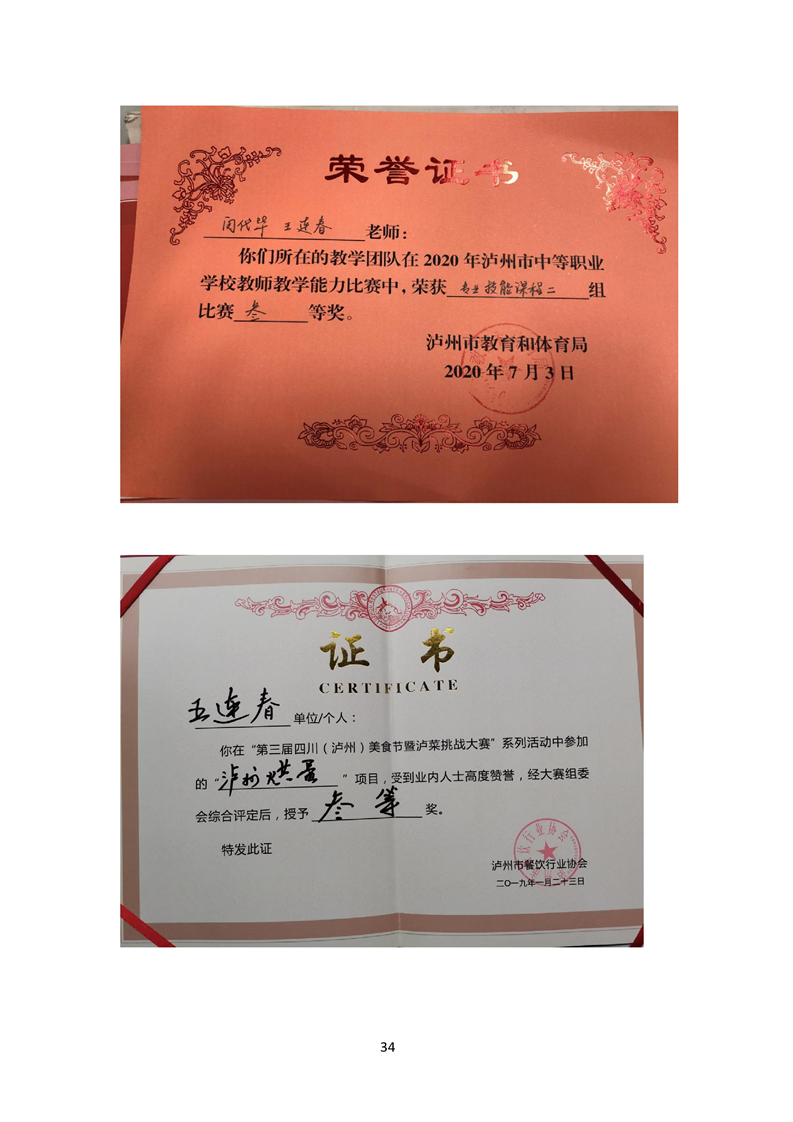 荣誉证书
闵代毕 王连春 老师：
你们所在的教学团队在 2020 年泸州市中等职业
学校教师教学能力比赛中，荣获 专业技能课程二 组
比赛 叁 等奖。
泸州市教育和体育局
2020 年 7 月 3 日
证 书
CERTIFICATE
王连春 单位/个人：
你在“第三届四川（泸州）美食节暨泸菜挑战大赛”系列活动中参加
的“泸州烘蛋”项目，受到业内人士高度赞誉，经大赛组委
会综合评定后，授予 叁等 奖。
特发此证
泸州市餐饮行业协会
二〇一九年一月二十三日
34